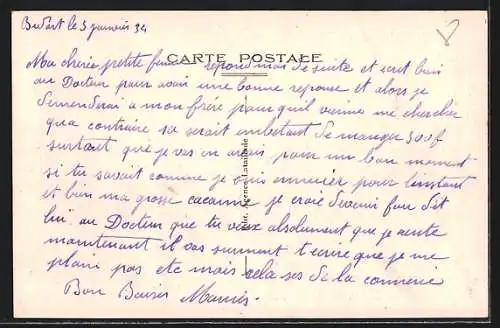 le 5 janvier 34
CARTE POSTALE
Ma cherie petite repond moi de suite et ecrit bien
au Docteur pour avoir une bonne reponse et alors je
demenderai a mon frere pour quil vienne me chercher
contraire sa serait embetant de manger 300f
surtout que je vais en avoir pour un bon moment
si tu savait comme je suis ennuier pour l'instant
et bien ma grosse je croie devenir fou dit
lui au Docteur que tu veux absolument que je rentre
maintenant il vas surement t ecrire que je me
plain pas etc mais cela ses de la connerie
Bon Baiser Maurice.
Edit. Agence Lataillade